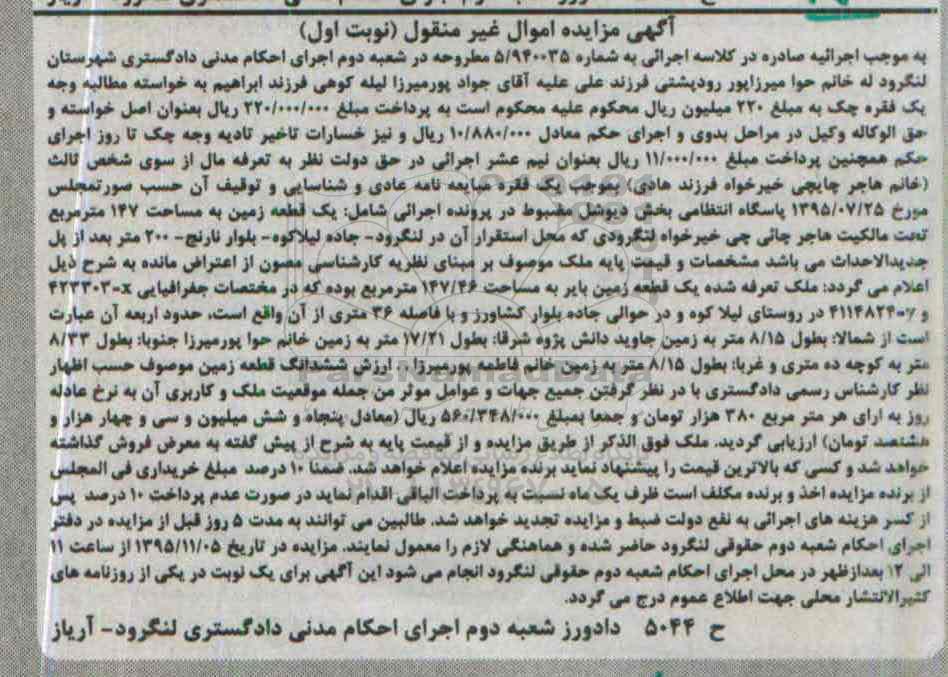 آگهی مزایده اموال غیر منقول (نوبت اول)
به موجب اجرائیه صادره در کلاسه اجرائی به شماره ۵/۹۴۰۰۳۵ مطروحه در شعبه دوم اجرای احکام مدنی دادگستری شهرستان
لنگرود له خانم حوا میرزاپور رودپشتی فرزند علی علیه آقای جواد پورمیرزا لیله کوهی فرزند ابراهیم به خواسته مطالبه وجه
یک فقره چک به مبلغ ۲۲۰ میلیون ریال محکوم علیه محکوم است به پرداخت مبلغ ۲۲۰/۰۰۰/۰۰۰ ریال بعنوان اصل خواسته و
حق الوکاله وکیل در مراحل بدوی و اجرای حکم معادل ۱۰/۸۸۰/۰۰۰ ریال و نیز خسارات تاخیر تادیه وجه چک تا روز اجرای
حکم همچنین پرداخت مبلغ ۱۱/۰۰۰/۰۰۰ ریال بعنوان نیم عشر اجرائی در حق دولت نظر به تعرفه مال از سوی شخص ثالث
(خانم هاجر چایچی خیرخواه فرزند هادی) بموجب یک فقره مبایعه نامه عادی و شناسایی و توقیف آن حسب صورتمجلس
مورخ ۱۳۹۵/۰۷/۲۵ پاسگاه انتظامی بخش دیوشل مضبوط در پرونده اجرائی شامل: یک قطعه زمین به مساحت ۱۴۷ مترمربع
تحت مالکیت هاجر چائی چی خیرخواه لنگرودی که محل استقرار آن در لنگرود- جاده لیلاکوه- بلوار نارنج- ۲۰۰ متر بعد از پل
جدیدالاحداث می باشد مشخصات و قیمت پایه ملک موصوف بر مبنای نظریه کارشناسی مصون از اعتراض مانده به شرح ذیل
اعلام می گردد: ملک تعرفه شده یک قطعه زمین بایر به مساحت ۱۴۷/۴۶ مترمربع بوده که در مختصات جغرافیایی x-۴۲۳۳۰۳
و y-۴۱۱۴۸۲۴ در روستای لیلا کوه و در حوالی جاده بلوار کشاورز و با فاصله ۳۶ متری از آن واقع است، حدود اربعه آن عبارت
است از شمالا: بطول ۸/۱۵ متر به زمین جاوید دانش پژوه شرقا: بطول ۱۷/۲۱ متر به زمین خانم حوا پورمیرزا جنوبا: بطول ۸/۳۳
متر به کوچه ده متری و غربا: بطول ۸/۱۵ متر به زمین خانم فاطمه پورمیرزا . ارزش ششدانگ قطعه زمین موصوف حسب اظهار
نظر کارشناس رسمی دادگستری با در نظر گرفتن جمیع جهات و عوامل موثر من جمله موقعیت ملک و کاربری آن به نرخ عادله
روز به ازای هر متر مربع ۳۸۰ هزار تومان و جمعا بمبلغ ۵۶۰/۳۴۸/۰۰۰ ریال (معادل پنجاه و شش میلیون و سی و چهار هزار و
هشتصد تومان) ارزیابی گردید. ملک فوق الذکر از طریق مزایده و از قیمت پایه به شرح از پیش گفته به معرض فروش گذاشته
خواهد شد و کسی که بالاترین قیمت را پیشنهاد نماید برنده مزایده اعلام خواهد شد. ضمنا ۱۰ درصد مبلغ خریداری فی المجلس
از برنده مزایده اخذ و برنده مکلف است ظرف یک ماه نسبت به پرداخت الباقی اقدام نماید در صورت عدم پرداخت ۱۰ درصد پس
از کسر هزینه های اجرائی به نفع دولت ضبط و مزایده تجدید خواهد شد. طالبین می توانند به مدت ۵ روز قبل از مزایده در دفتر
اجرای احکام شعبه دوم حقوقی لنگرود حاضر شده و هماهنگی لازم را معمول نمایند. مزایده در تاریخ ۱۳۹۵/۱۱/۰۵ از ساعت ۱۱
الی ۱۲ بعدازظهر در محل اجرای احکام شعبه دوم حقوقی لنگرود انجام می شود این آگهی برای یک نوبت در یکی از روزنامه های
کثیرالانتشار محلی جهت اطلاع عموم درج می گردد.
ح ۵۰۴۴ دادورز شعبه دوم اجرای احکام مدنی دادگستری لنگرود- آریاز